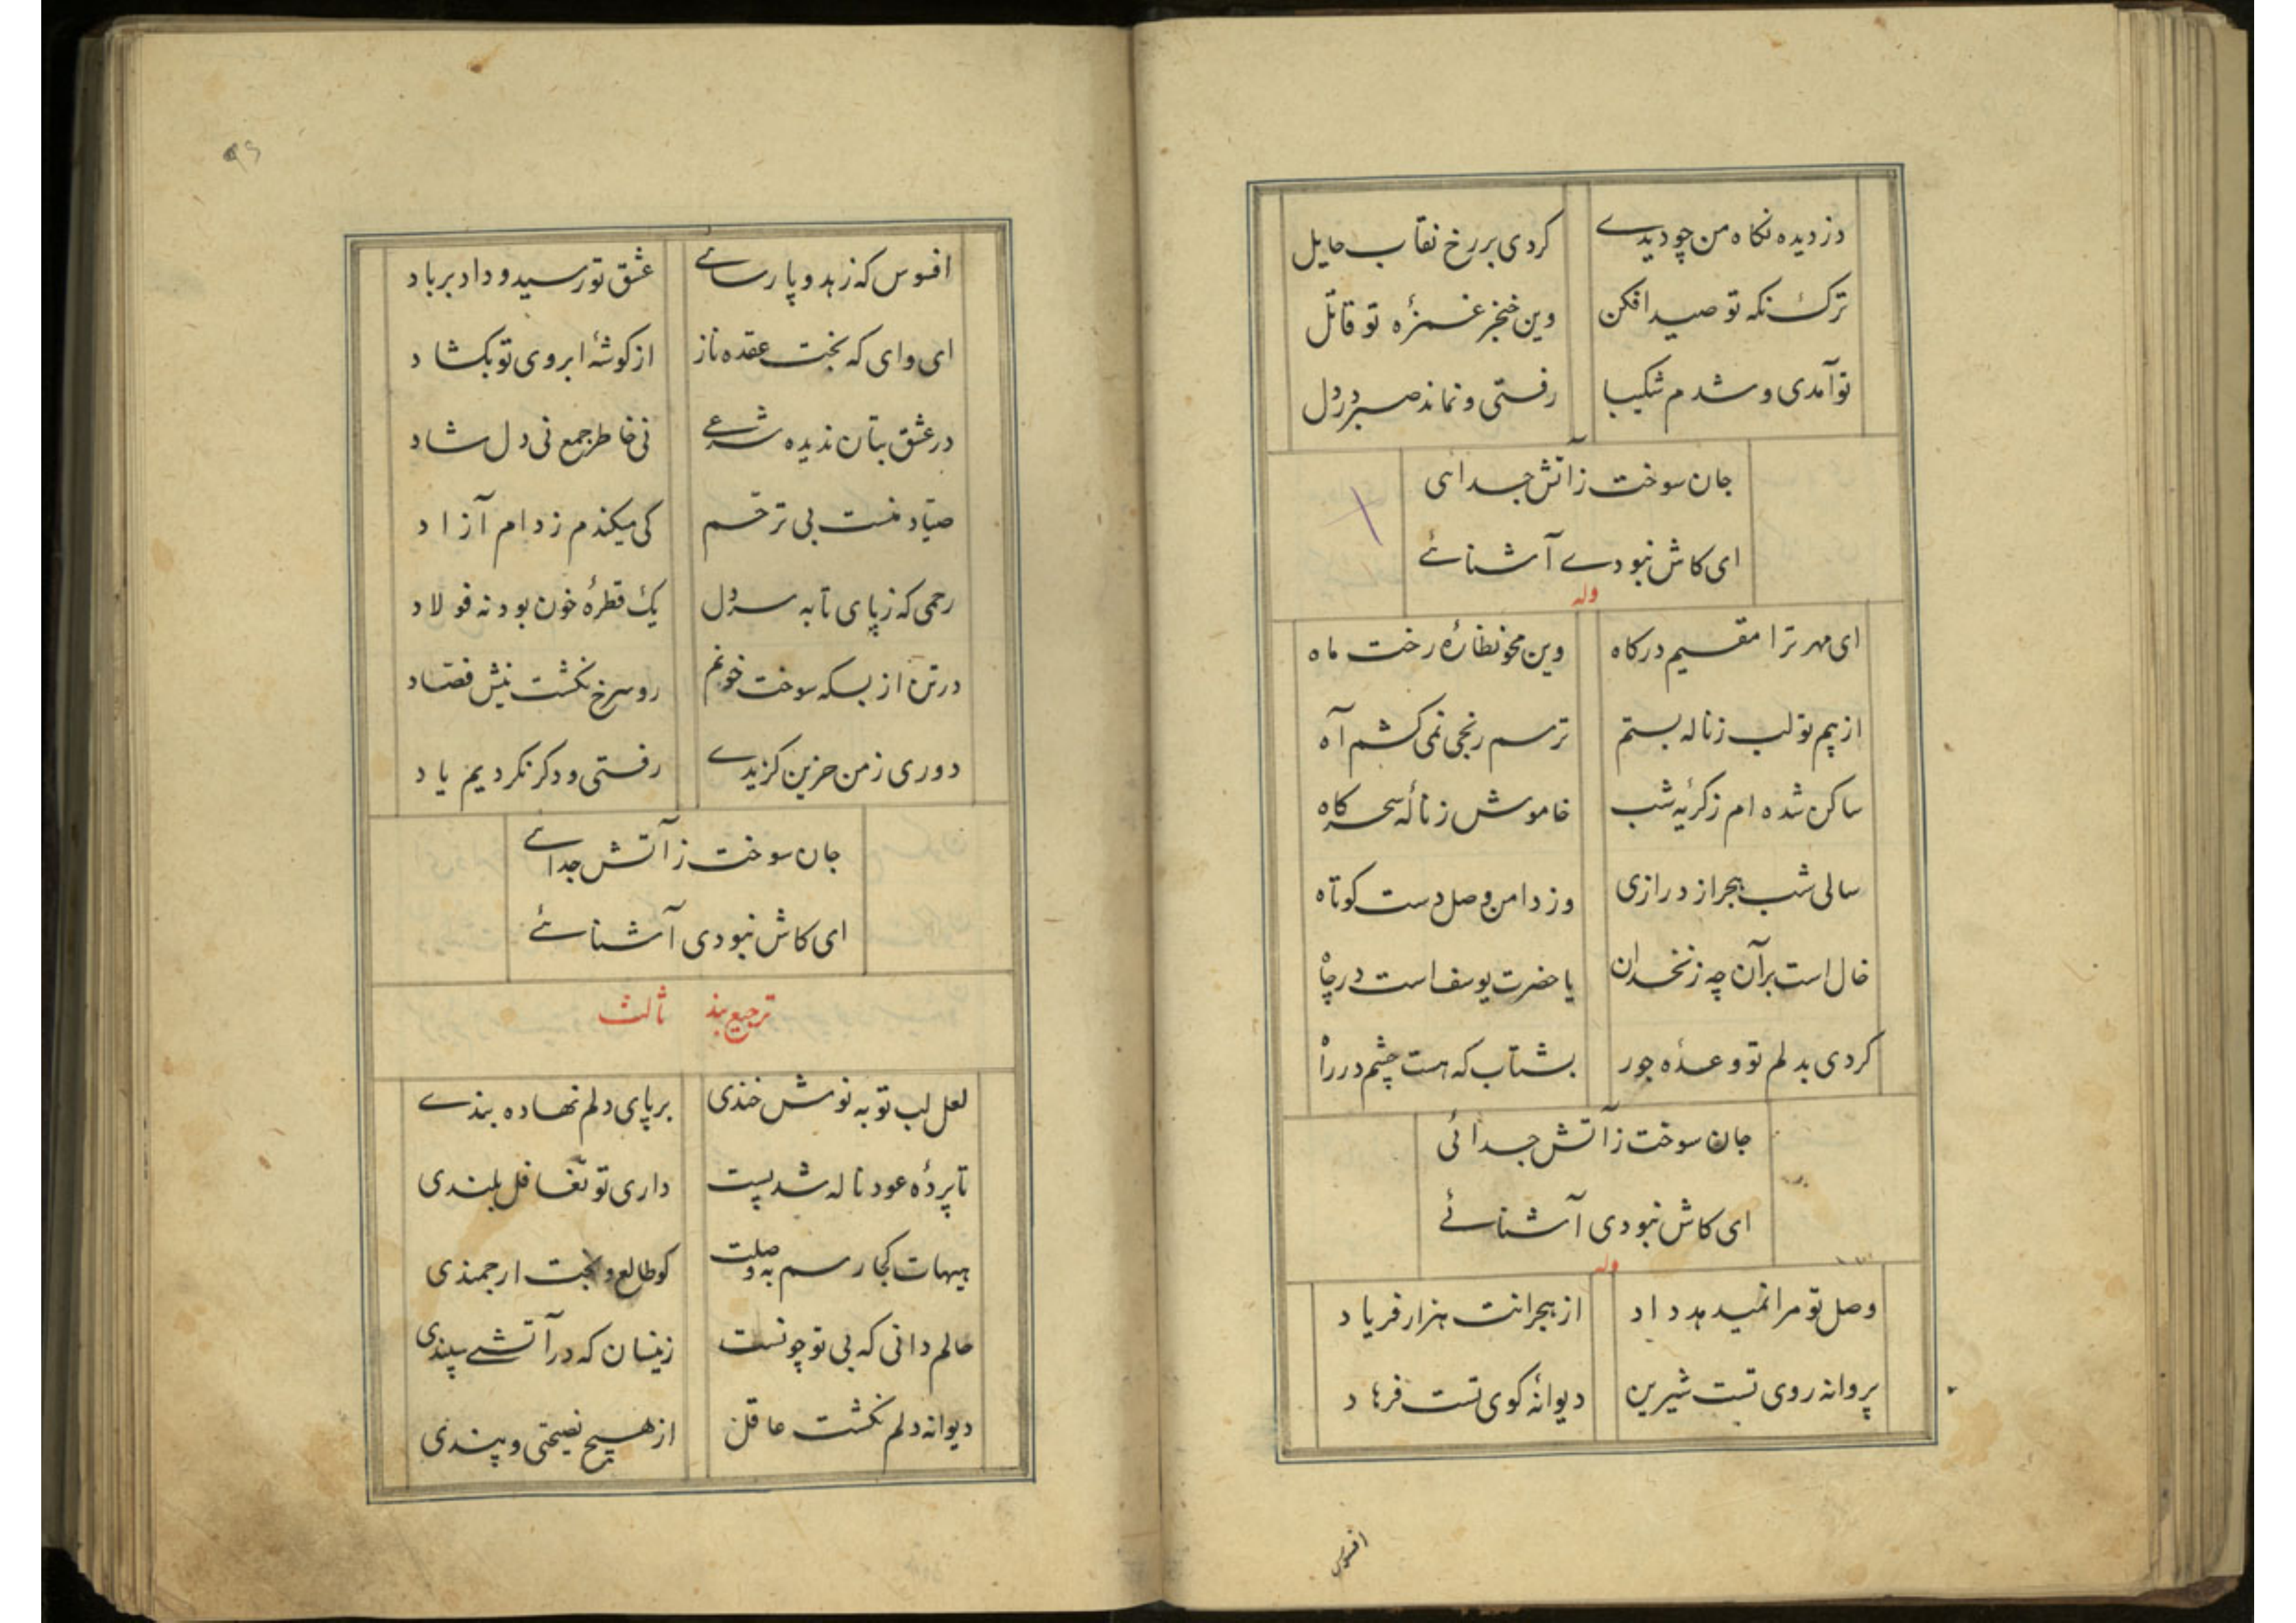 دزدیده نکاه من چو دیدے کردی بررخ نقاب حایل
ترک نکه تو صید افکن وین خنجر غمزهٔ تو قاتل
توآمدی و شدم شکیبا رفتی و نماند صبر در دل
جان سوخت زآتش جدائی
ای کاش نبودے آشنائے
وله
ای مهر ترا مقیم درکاه وین محو نظارهٔ رخت ماه
از بیم تو لب زناله بستم ترسم رنجی نمی کشم آه
ساکن شده ام زکریهٔ شب خاموش زنالهٔ سحرکاه
سالی شب هجر از درازی وز دامن وصل دست کوتاه
خال است برآن چه زنخدان یا حضرت یوسف است درچاه
کردی بدلم تو وعدهٔ جور بشتاب که هست چشم درراه
جان سوخت زآتش جدائی
ای کاش نبودی آشنائے
وله
وصل تو مرا نمیدهد داد از هجرانت هزار فریاد
پروانه روی تست شیرین دیوانهٔ کوی تست فرهاد
افسوس
۹۶
افسوس که زهد و پارسائے عشق تو رسید و داد برباد
ای وای که بخت عقده ناز از کوشهٔ ابروی تو بکشاد
در عشق بتان ندیده شرعے نی خاطر جمع نی دل شاد
صیاد منست بی ترحم کی میکندم زدام آزاد
رحمی که زپای تا به سر دل یک قطرهٔ خون بود نه فولاد
در تن از بسکه سوخت خونم روسرخ نکشت نیش فصاد
دوری زمن حزین کزیدے رفتی و دکر نکردیم یاد
جان سوخت زآتش جدائے
ای کاش نبودی آشنائے
ترجیع بند ثالث
لعل لب تو به نوش خندی برپای دلم نهاده بندے
تا پردهٔ عود ناله شد پست داری تو تغافل بلندی
هیهات کجا رسم به وصلت کو طالع و بخت ارجمندی
حالم دانی که بی تو چونست زینسان که در آتشے سپندی
دیوانه دلم نکشت عاقل از هیچ نصیحتی و پندی